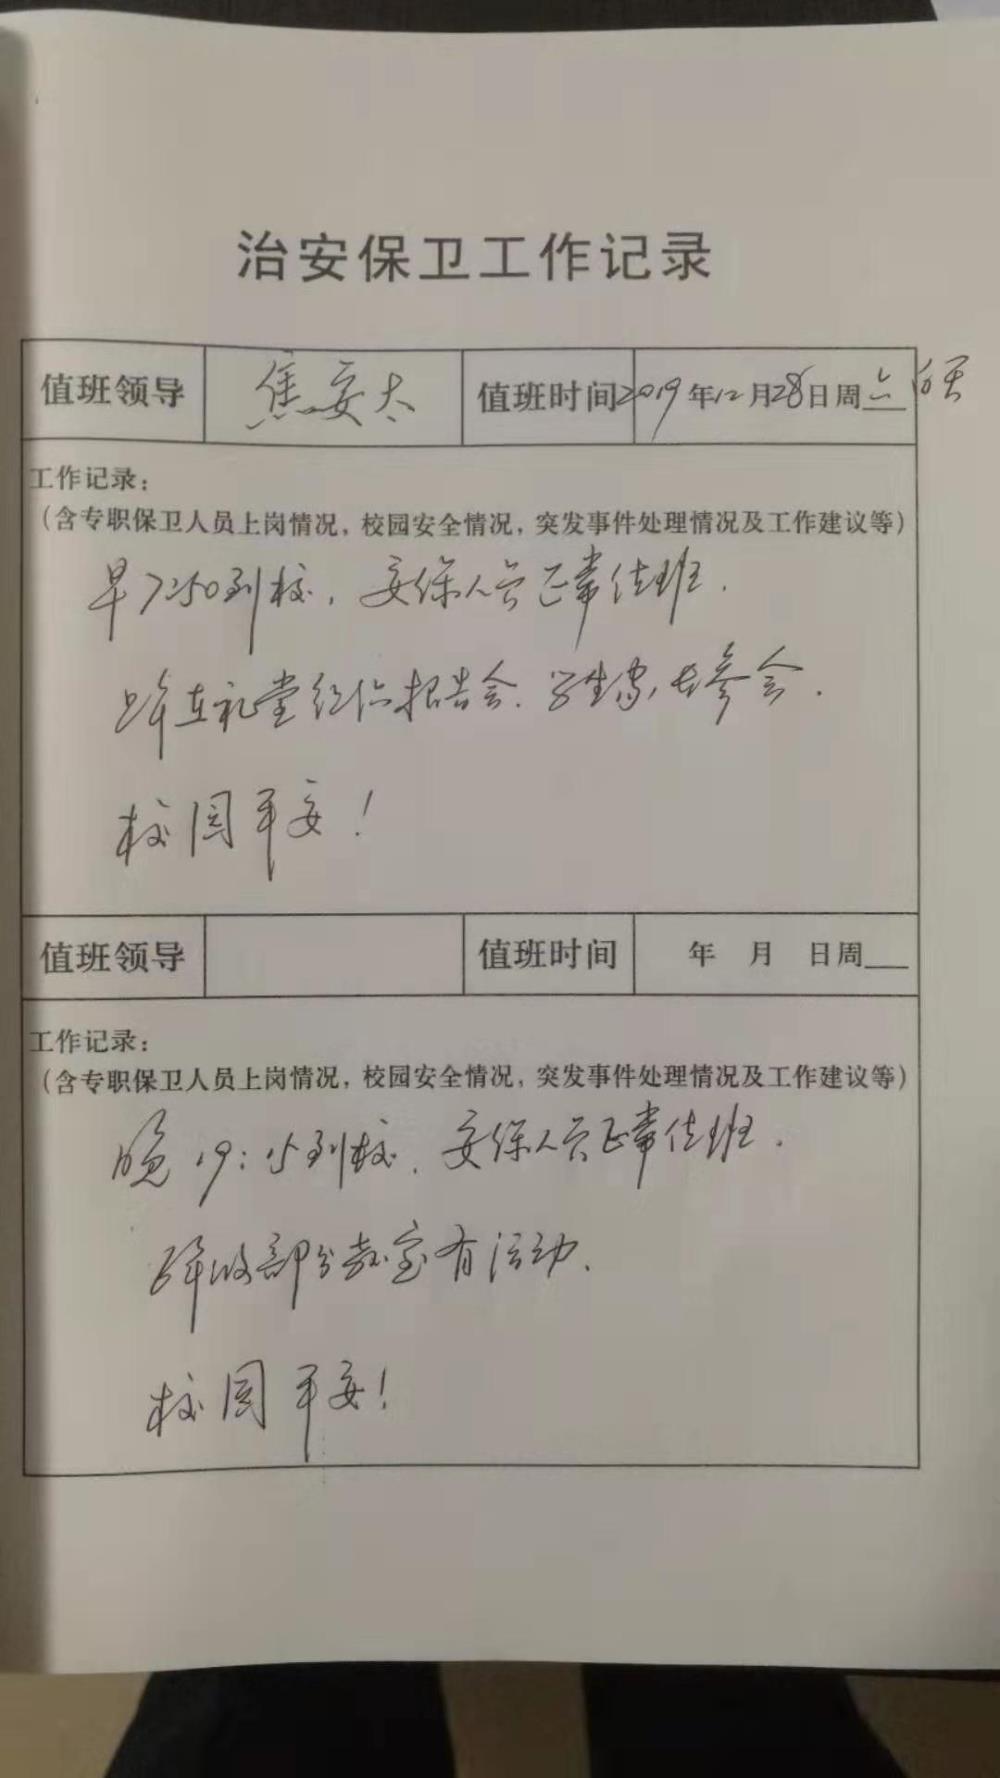 治安保卫工作记录
值班领导 焦安太 值班时间 2019年12月28日周六 白天
工作记录：
（含专职保卫人员上岗情况，校园安全情况，突发事件处理情况及工作建议等）
早7:50到校，安保人员正常值班.
上午在礼堂 报告会.学生家长参会.
校园平安！
值班领导 值班时间 年 月 日周
工作记录：
（含专职保卫人员上岗情况，校园安全情况，突发事件处理情况及工作建议等）
晚19:15到校.安保人员正常值班.
部分教室有活动.
校园平安！